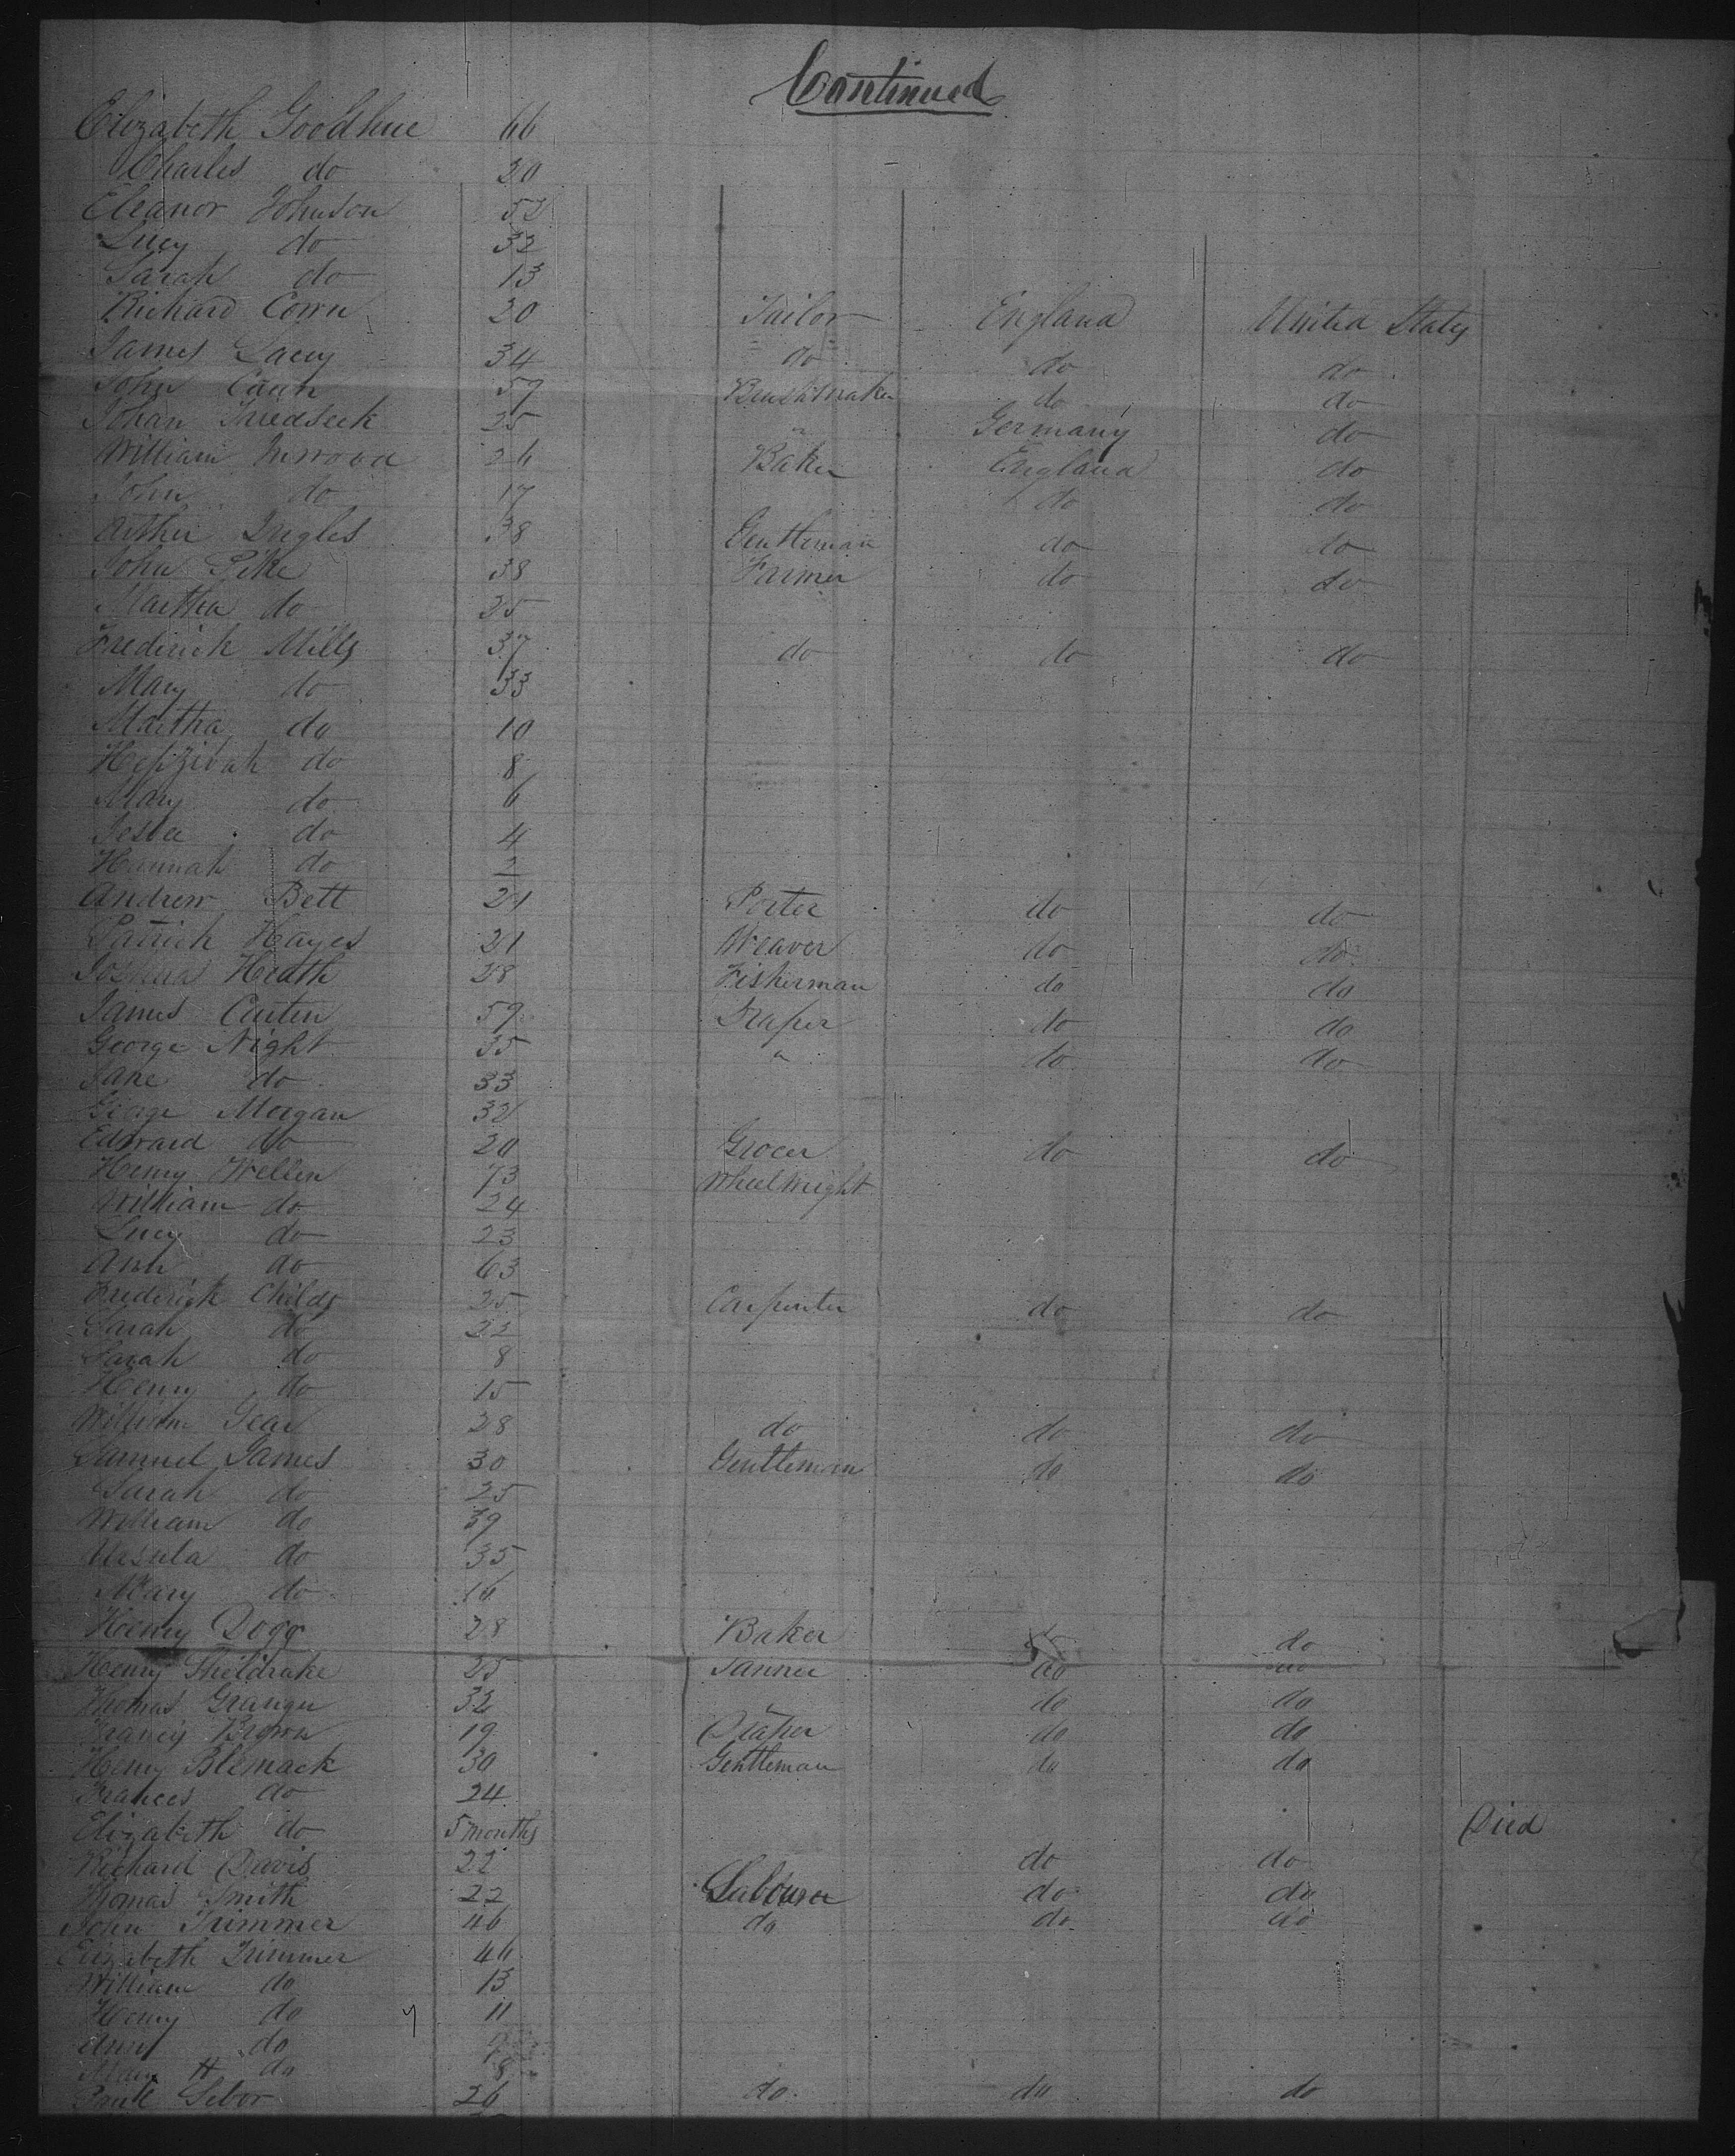 Continued
Elizabeth Goodhue 66
Charles do 20
Eleanor Johnson 52
Lucy do 32
Sarah do 13
Richard Corn 20 Tailor England United States
James Lacey 34 do do do
John 59 Brushmaker do do
Johan 25 " Germany do
William Inwood 26 Baker England do
John do 17 do do
Arthur Ingles 38 Gentleman do do
John Pike 38 Farmer do do
Martha do 25
Frederick Mills 37 do do do
Mary do 33
Martha do 10
Hepzibah do 8
Mary do 6
do 4
Hannah do 2
Andrew Bett 21 Porter do do
Patrick Hayes 21 Weaver do do
Joshua Heath 28 Fisherman do do
James 59 do do
George Night 35 " do do
Jane do 33
George Morgan 32
Edward do 20 Grocer do do
Henry Wellen 73 Wheelwright
William do 24
Lucy do 23
Ann do 63
Frederick Childs 25 Carpenter do do
Sarah do 22
Sarah do 8
Henry do 15
William Gear 28 do do do
Samuel James 30 Gentleman do do
Sarah do 25
William do 39
Ursula do 35
Mary do 16
Henry Dogg 28 Baker do do
Henry Sheldrake 25 Tanner do do
Thomas Granger 32 do do
Francis Brown 19 Draper do do
Henry Blemack 30 Gentleman do do
Frances do 24
Elizabeth do 5 months Died
Richard Davis 22 do do
Thomas Smith 22 Labourer do do
John Trimmer 46 do do do
Elizabeth Trimmer 46
William do 13
Henry do 11
Ann do
Mary H do 8
26 do do do